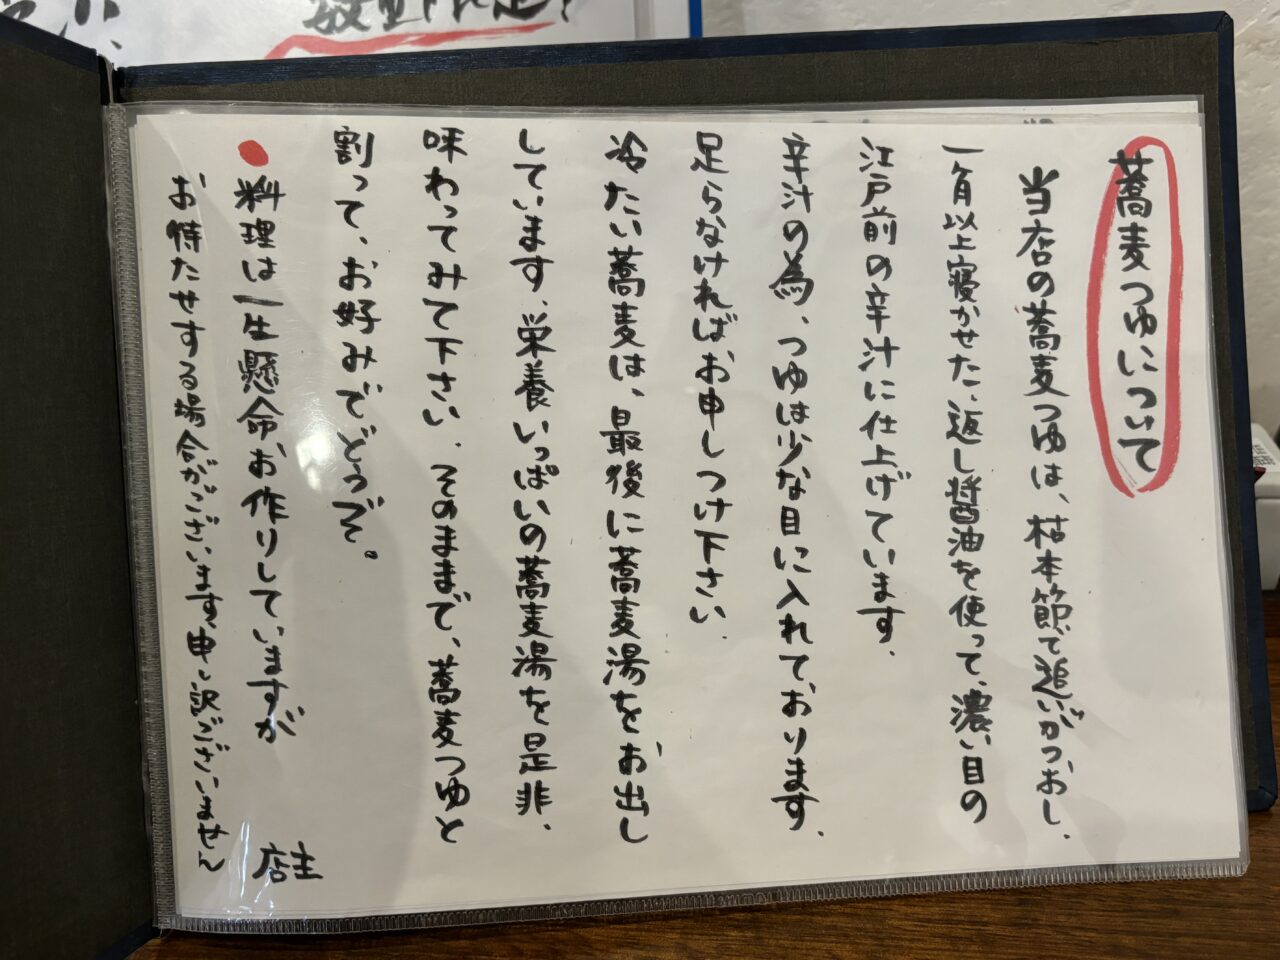 蕎麦つゆについて
当店の蕎麦つゆは、枯本節で追いがつおし、
一ヶ月以上寝かせた、返し醤油を使って、濃い目の
江戸前の辛汁に仕上げています。
辛汁の為、つゆは少な目に入れております。
足らなければお申しつけ下さい。
冷たい蕎麦は、最後に蕎麦湯をお出し
しています、栄養いっぱいの蕎麦湯を是非、
味わってみて下さい。そのままで、蕎麦つゆと
割って、お好みでどうぞ。
●料理は一生懸命、お作りしていますが
お待たせする場合がございます、申し訳ございません
店主